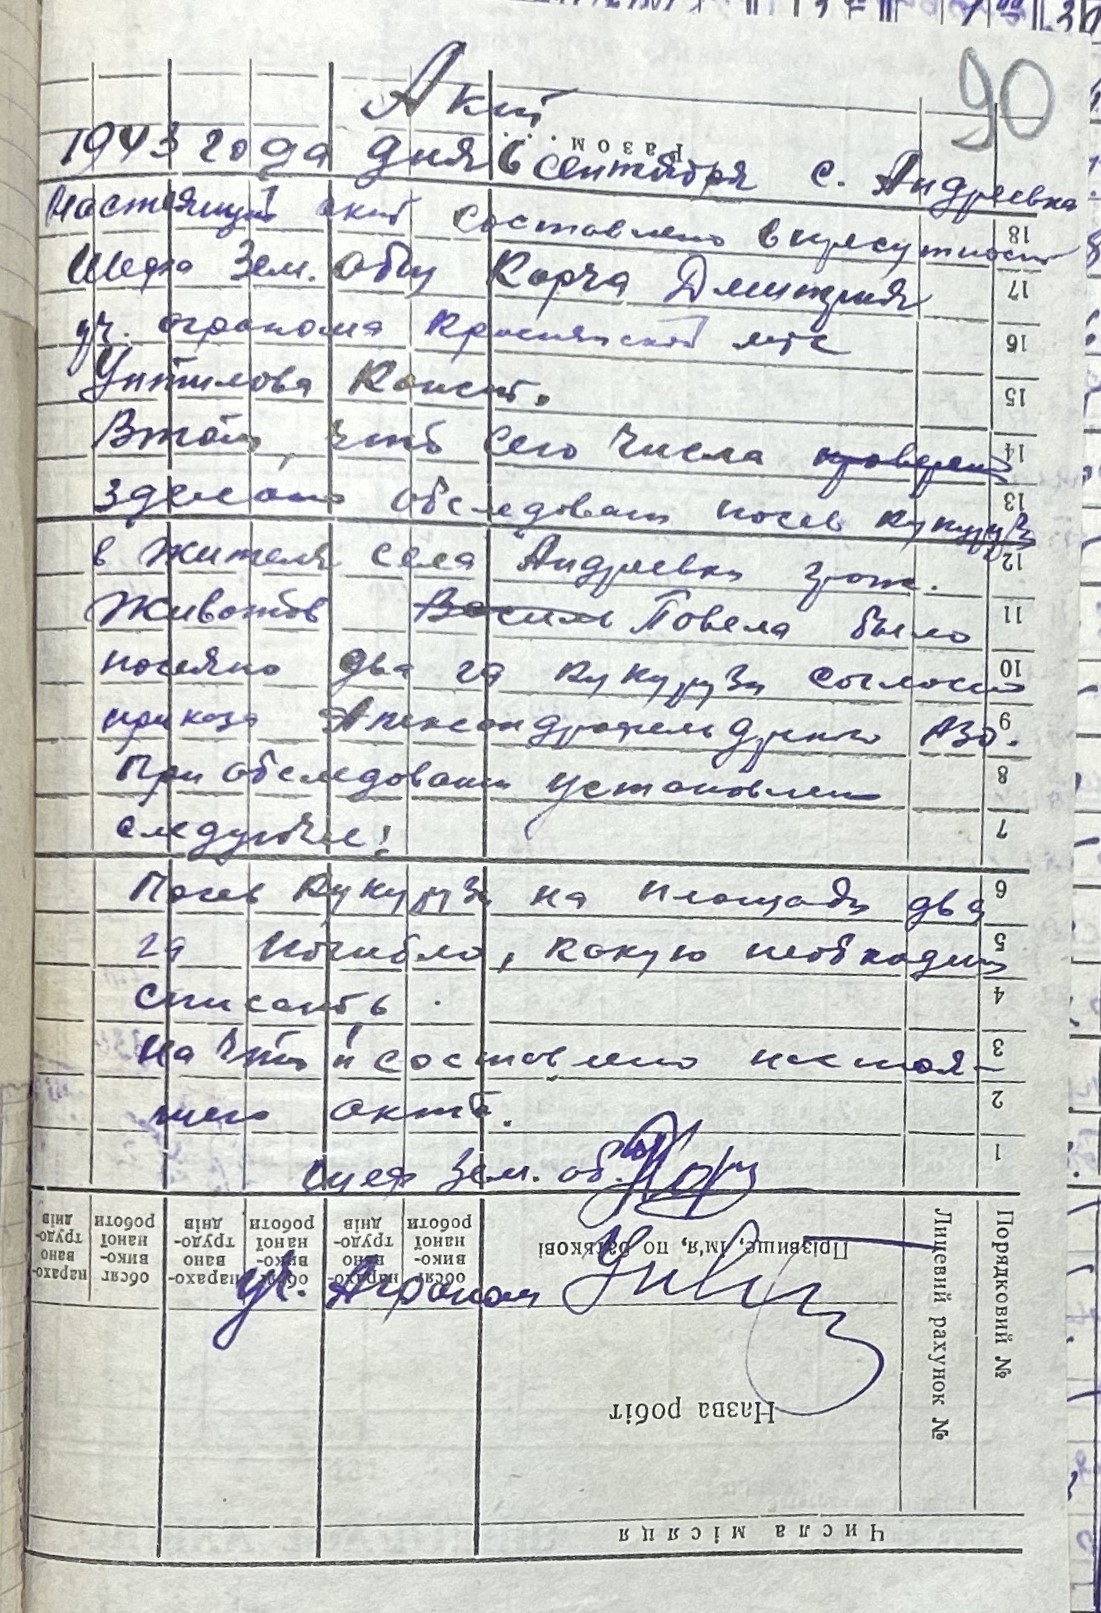 90
Акт
1943 года дня 6 сентября с. Андреевка
Настоящий акт составлено в присутности
Шефа Зем. Общ Корча Дмитрия
уч. агронома Краснянской мтс
Унтилова Конст.
Втом, что сего числа проверен
зделано обследовани посев кукурузи
в жителя села Андреевки грож.
Животов Василь Повела было
посеяно два га кукурузи согласно
приказа Александрфельдского РЗО.
При обследовани установлено
следующее:
Посев кукурузи на площади два
га погибло, какую необходимо
списать.
На что и составлено настоя-
щего акта.
Шеф Зем. об.
уч. Агроном
Разом
18
17
16
15
14
13
12
11
10
9
8
7
6
5
4
3
2
1
Порядковий №
Лицевий рахунок №
Прізвище, ім'я, по батькові
Назва робіт
обсяг вико-наної роботи
нарахо-вано трудо-днів
обсяг вико-наної роботи
нарахо-вано трудо-днів
обсяг вико-наної роботи
нарахо-вано трудо-днів
Числа місяця